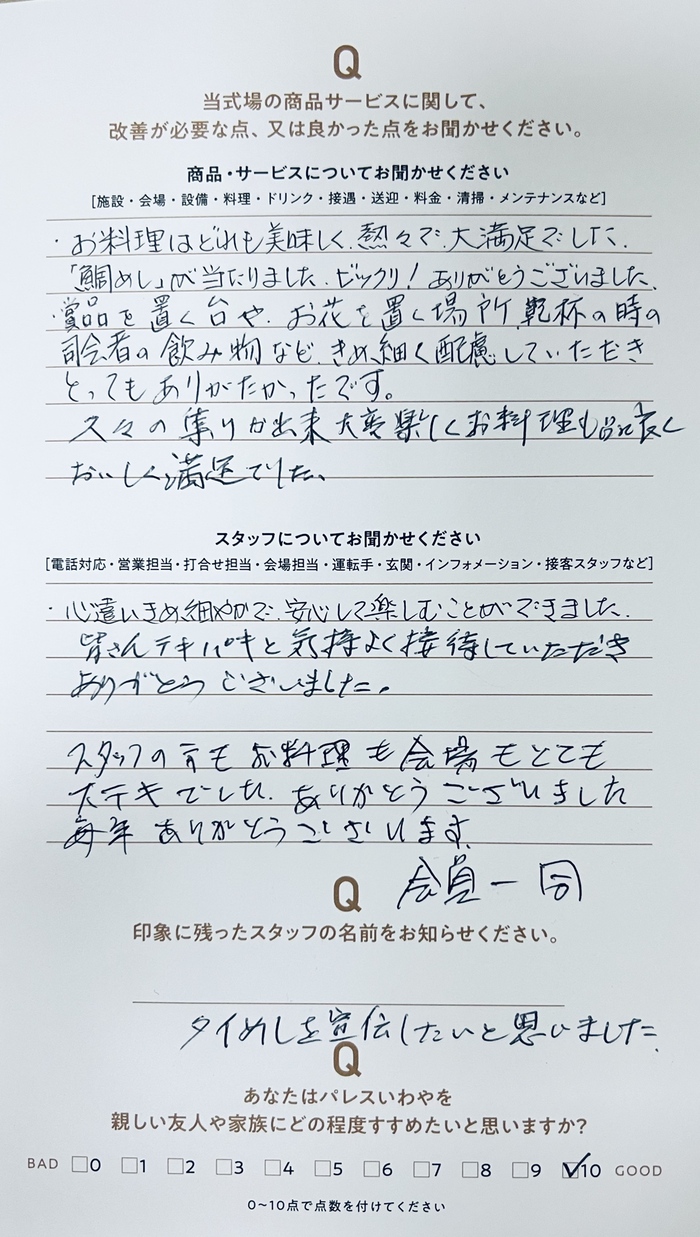 Q
当式場の商品サービスに関して、
改善が必要な点、又は良かった点をお聞かせください。
商品・サービスについてお聞かせください
[施設・会場・設備・料理・ドリンク・接遇・送迎・料金・清掃・メンテナンスなど]
・お料理はどれも美味しく、熱々で、大満足でした、
「鯛めし」が当たりました、ビックリ！ありがとうございました、
・賞品を置く台や、お花を置く場所、乾杯の時の
司会者の飲み物など、きめ細く配慮していただき
とってもありがたかったです。
久々の集りが出来大変楽しくお料理も品に良く
おいしく満足でした、
スタッフについてお聞かせください
[電話対応・営業担当・打合せ担当・会場担当・運転手・玄関・インフォメーション・接客スタッフなど]
・心遣いきめ細やかで、安心して楽しむことができました、
皆さんテキパキと気持よく接待していただき
ありがとうございました。
スタッフの方もお料理も会場もとても
ステキでした、ありがとうございました
毎年ありがとうございます、
会員一同
Q
印象に残ったスタッフの名前をお知らせください。
タイめしを宣伝したいと思いました、
Q
あなたはパレスいわやを
親しい友人や家族にどの程度すすめたいと思いますか？
BAD □0 □1 □2 □3 □4 □5 □6 □7 □8 □9 ☑10 GOOD
0～10点で点数を付けてください